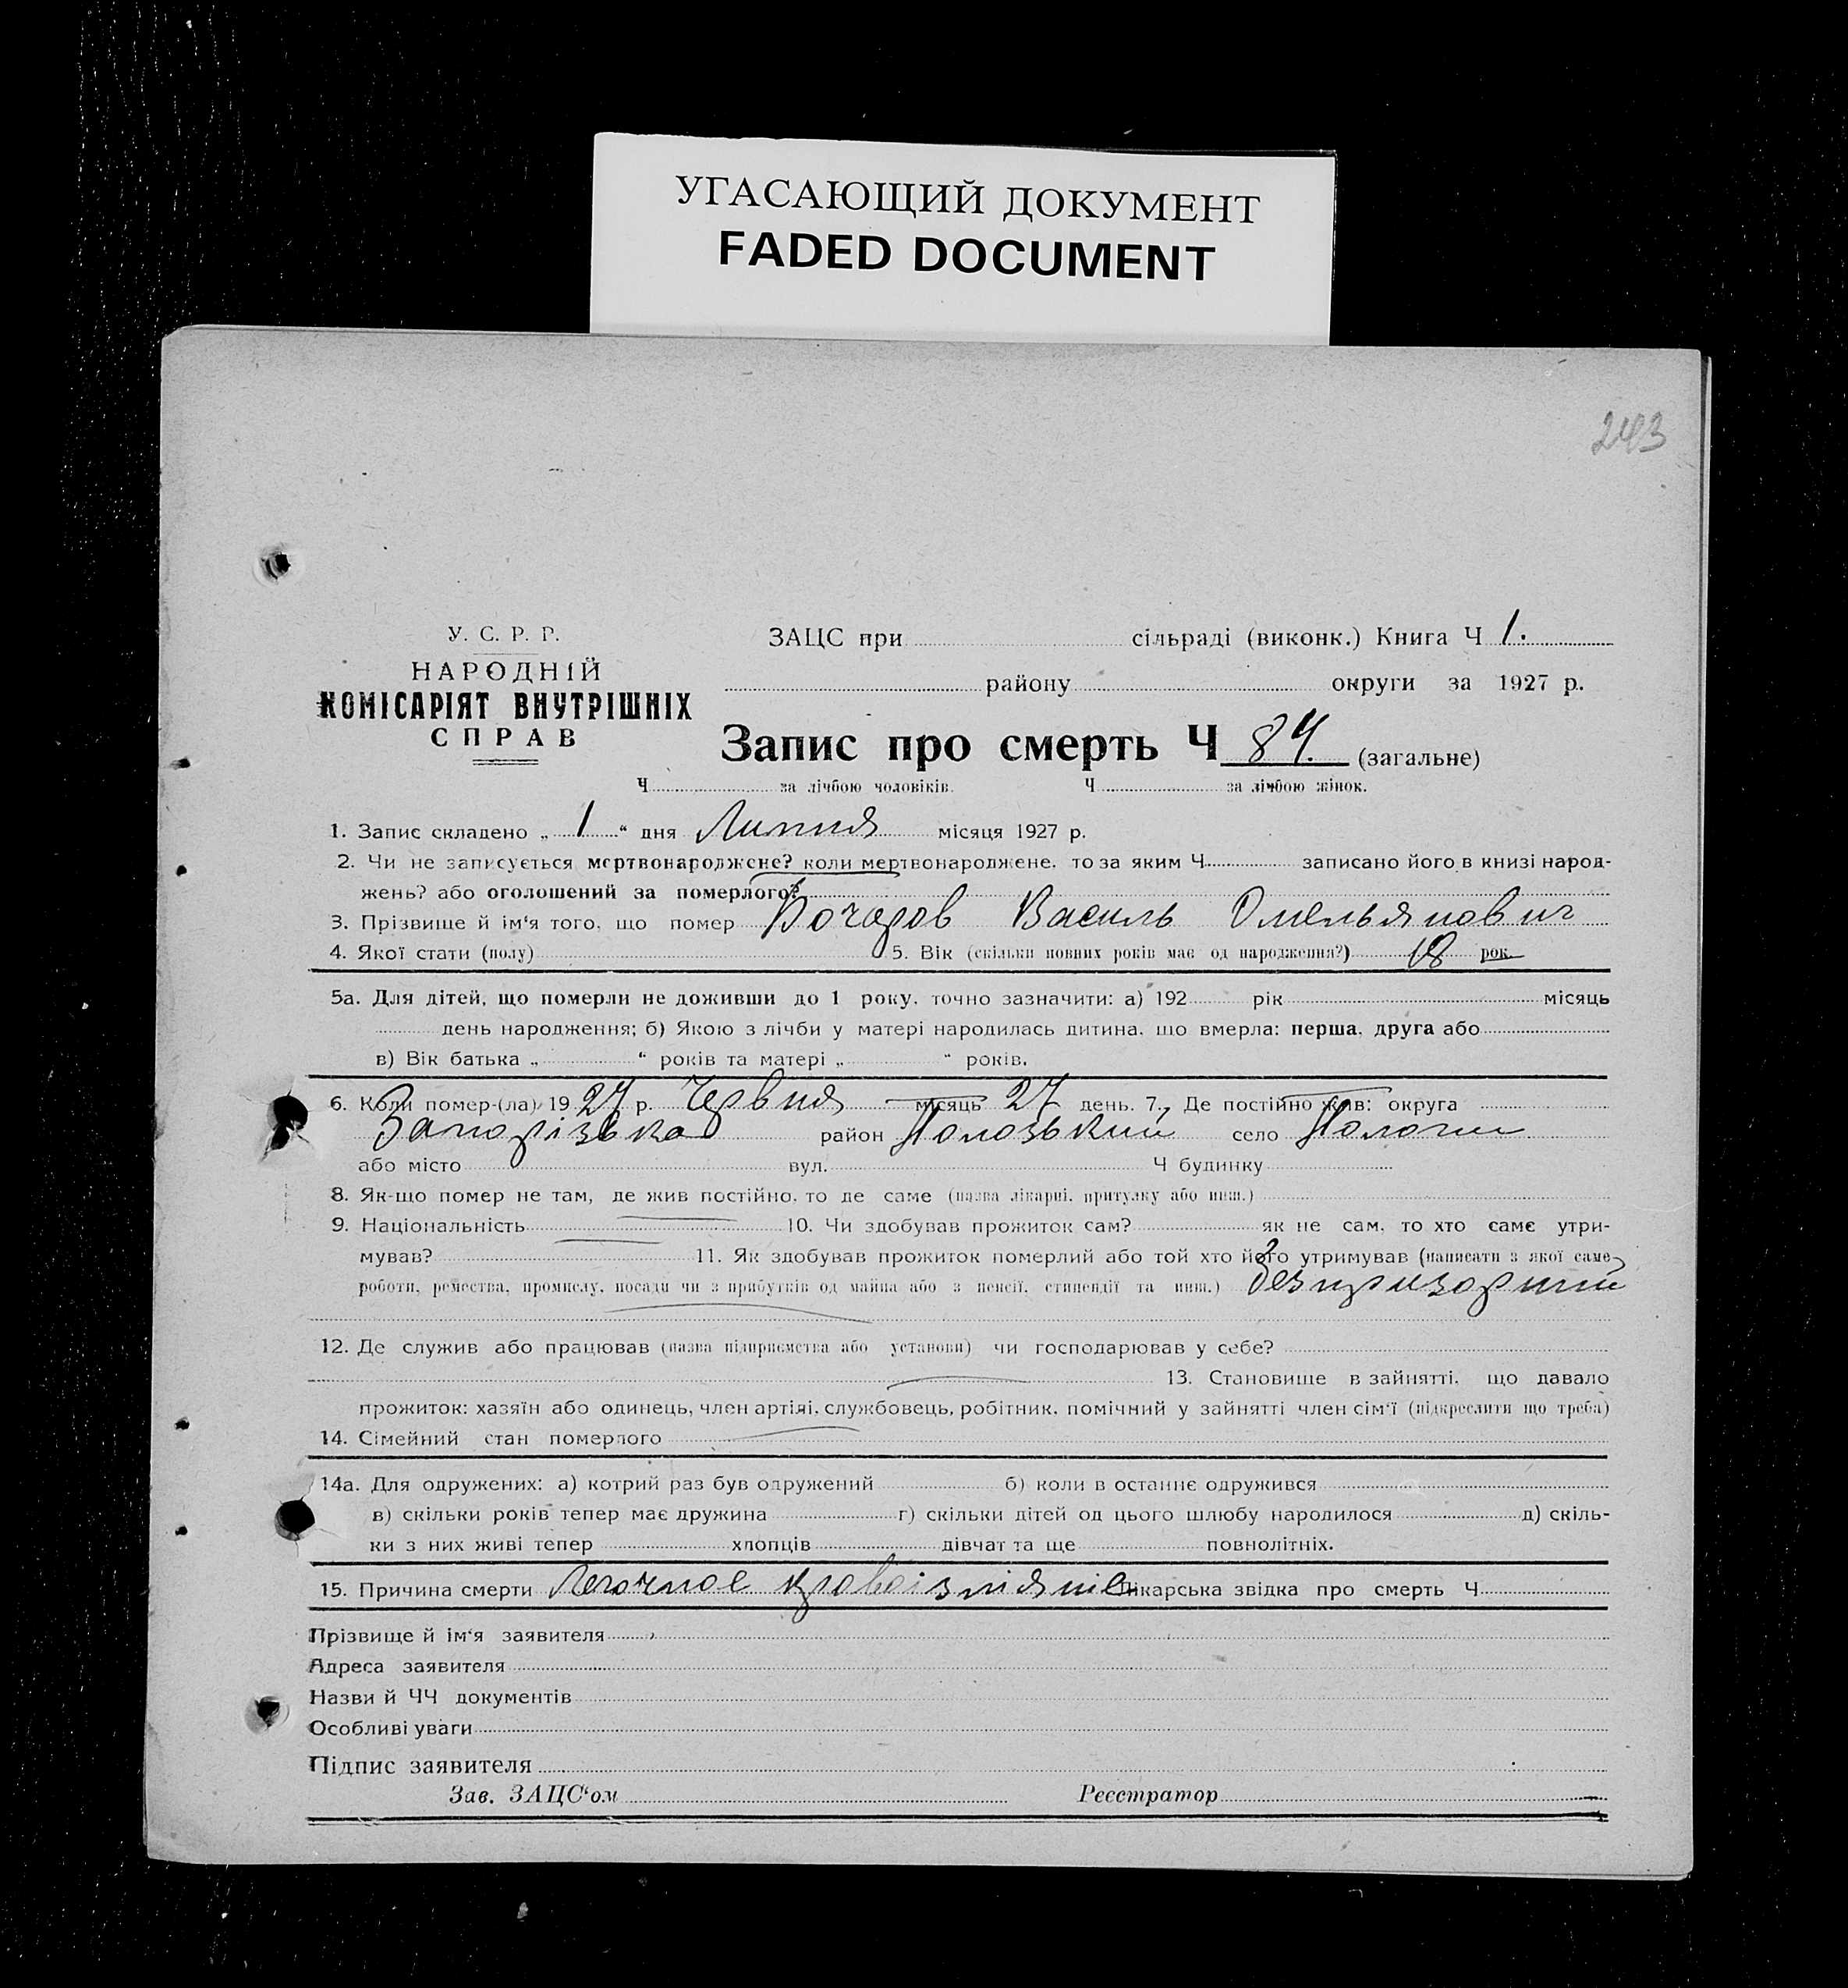 УГАСАЮЩИЙ ДОКУМЕНТ
FADED DOCUMENT
243
У. С. Р. Р.
НАРОДНІЙ
КОМІСАРІЯТ ВНУТРІШНІХ
СПРАВ
ЗАЦС при сільраді (виконк.) Книга Ч 1.
району округи за 1927 р.
Запис про смерть Ч 84. (загальне)
Ч за лічбою чоловіків. Ч за лічбою жінок.
1. Запис складено „ 1 “ дня Липня місяця 1927 р.
2. Чи не записується мертвонароджене? коли мертвонароджене, то за яким Ч записано його в книзі народ-
жень? або оголошений за померлого?
3. Прізвище й ім‘я того, що помер Бочаров Василь Омельянович
4. Якої стати (полу) 5. Вік (скільки повних років має од народження?) 18 рок.
5а. Для дітей, що померли не доживши до 1 року, точно зазначити: а) 192 рік місяць
день народження; б) Якою з лічби у матері народилась дитина, що вмерла: перша, друга або
в) Вік батька „ “ років та матері „ “ років.
6. Коли помер-(ла) 19 27 р. Червня місяць 27 день. 7. Де постійно жив: округа
Запорізька район Пологзький село Пологи
або місто вул. Ч будинку
8. Як-що помер не там, де жив постійно, то де саме (назва лікарні, притулку або инш.)
9. Національність 10. Чи здобував прожиток сам? як не сам, то хто саме утри-
мував? 11. Як здобував прожиток померлий або той хто його утримував (написати з якої саме
роботи, ремества, промислу, посади чи з прибутків од майна або з пенсії, стипендії та инш.) безпризорний
12. Де служив або працював (назва підприємства або установи) чи господарював у себе?
13. Становище в зайнятті, що давало
прожиток: хазяїн або одинець, член артілі, службовець, робітник, помічний у зайнятті член сім‘ї (підкреслити що треба)
14. Сімейний стан померлого
14а. Для одружених: а) котрий раз був одружений б) коли в останнє одружився
в) скільки років тепер має дружина г) скільки дітей од цього шлюбу народилося д) скіль-
ки з них живі тепер хлопців дівчат та ще повнолітніх.
15. Причина смерти Легочное кровоізліяніе Лікарська звідка про смерть Ч
Прізвище й ім‘я заявителя
Адреса заявителя
Назви й ЧЧ документів
Особливі уваги
Підпис заявителя
Зав. ЗАЦС‘ом Реєстратор